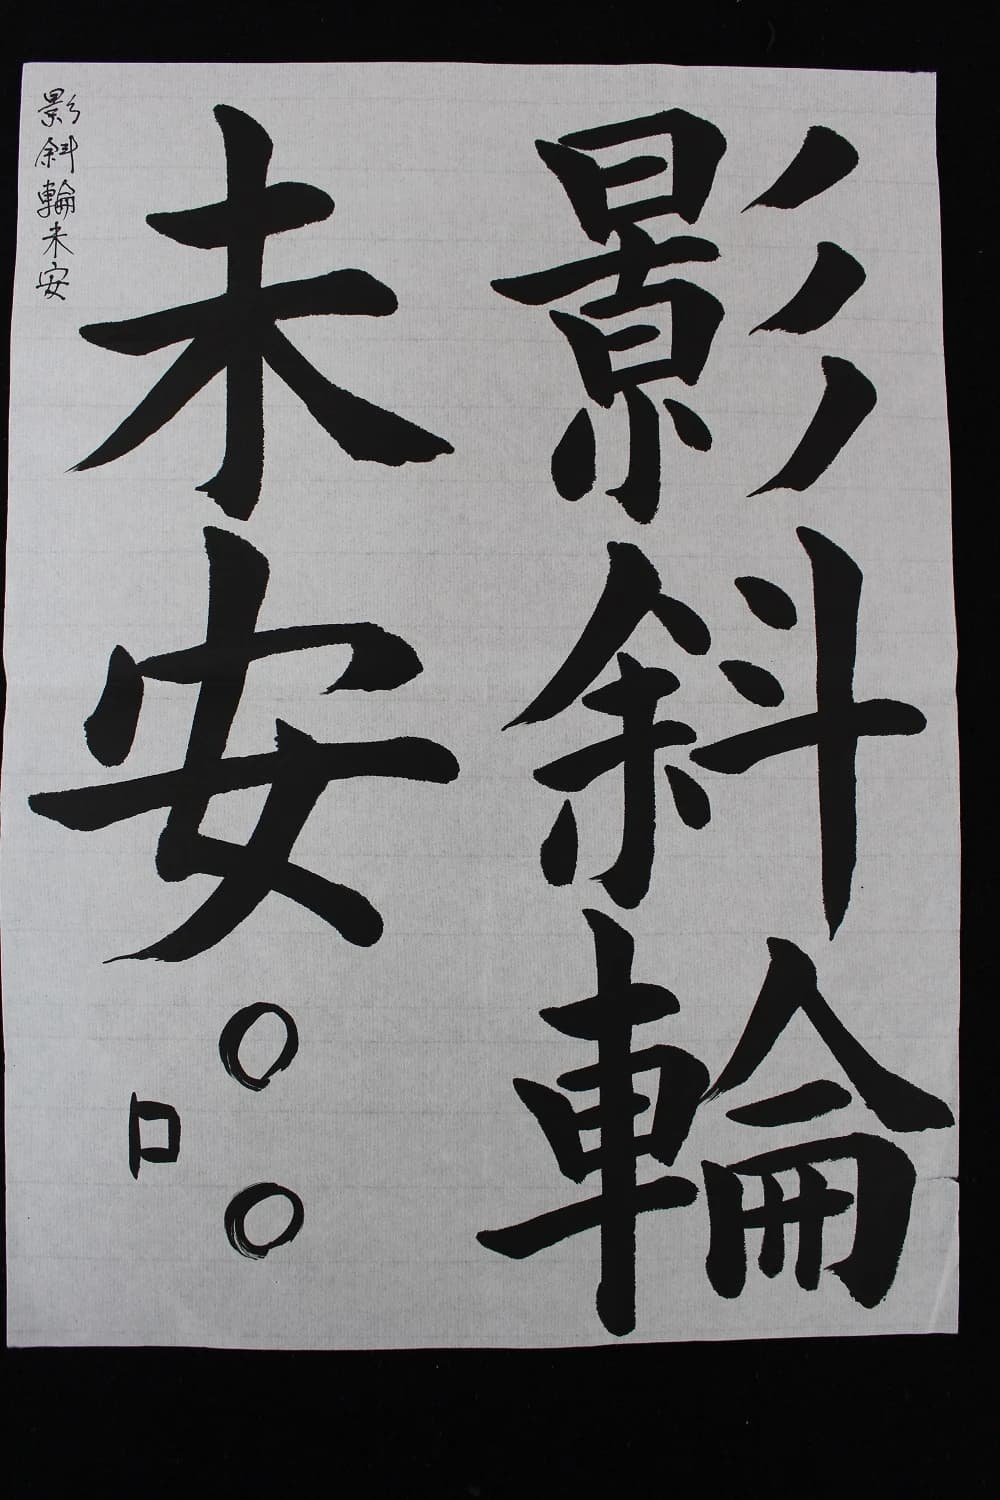 影斜輪
未安
○○
口
影斜輪未安